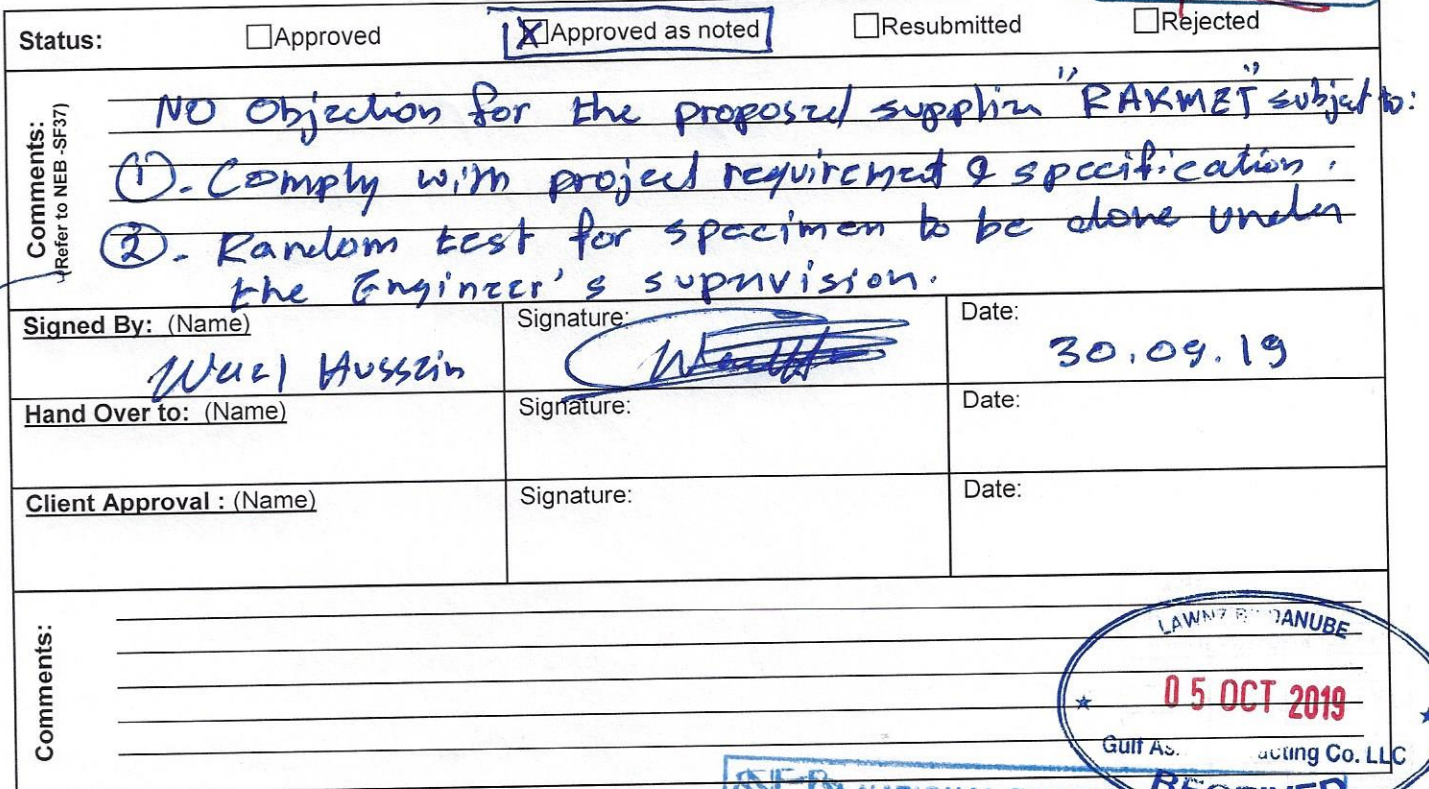 Status: ☐Approved ☒Approved as noted ☐Resubmitted ☐Rejected
Comments:
(Refer to NEB -SF37)
No Objection for the proposed supplier "RAKMET" subject to:
①. Comply with project requirement & specification.
②. Random test for specimen to be done under
the Engineer's supervision.
Signed By: (Name) Signature: Date:
Wael Hussein 30.09.19
Hand Over to: (Name) Signature: Date:
Client Approval : (Name) Signature: Date:
Comments:
LAWNZ DANUBE
05 OCT 2019
Gulf Co. LLC
RECEIVED